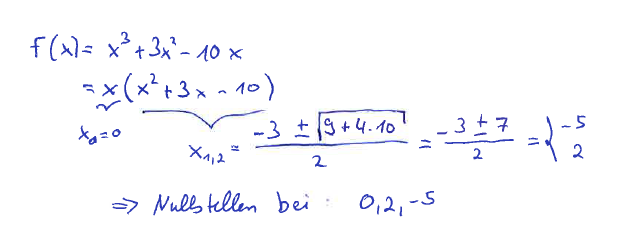 f(x) = x³ + 3x² - 10x
= x(x² + 3x - 10)
x₀ = 0
x₁,₂ = (-3 ± √(9 + 4·10)) / 2 = (-3 ± 7) / 2 = { -5
2
⇒ Nullstellen bei: 0, 2, -5